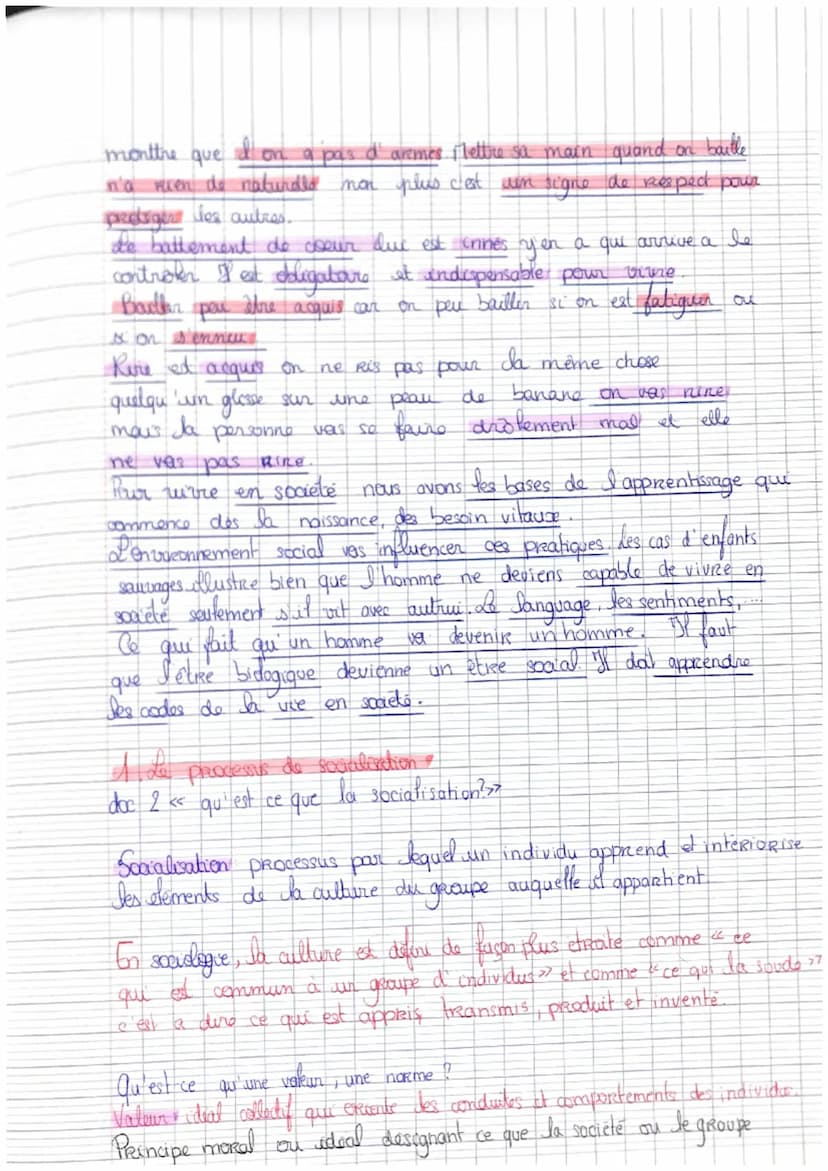 monttre que l'on a pas d'armes Mettre sa main quand on baille
n'a rien de naturelle non plus c'est un signe de respect pour
protéger les autres.
Le battement de coeur lui est innés y en a qui arrive a le
controler Il est obligatoire et indispensable pour vivre.
Bailler peu être acquis car on peu bailler si on est fatiguer ou
si on s'ennui
Rire est acquis on ne ris pas pour la même chose
quelqu'un glisse sur une peau de banane on vas rire
mais la personne vas se faire drôlement mal et elle
ne vas pas rire.
Pour vivre en société nous avons les bases de l'apprentissage qui
commence dès la naissance, des besoin vitaux.
L'environnement social vas influencer ces pratiques. Les cas d'enfants
sauvages illustre bien que l'homme ne deviens capable de vivre en
société seulement s'il vit avec autrui. Le language, les sentiments, ...
Ce qui fait qu'un homme va devenir un homme. Il faut
que l'être biologique devienne un être social. Il doit apprendre
les codes de la vie en société.
1. Le processus de socialisation
doc 2 « qu'est ce que la socialisation? »
Socialisation processus par lequel un individu apprend et intériorise
les éléments de la culture du groupe auquelle il appartient.
En sociologie, la culture est défini de façon plus etroite comme « ce
qui est commun à un groupe d'individus » et comme « ce qui la soude »
c'est a dire ce qui est appris, transmis, produit et inventé.
Qu'est ce qu'une valeur, une norme ?
Valeur : idéal collectif qui oriente les conduites et comportements des individus.
Principe moral ou idéal désignant ce que la société ou le groupe